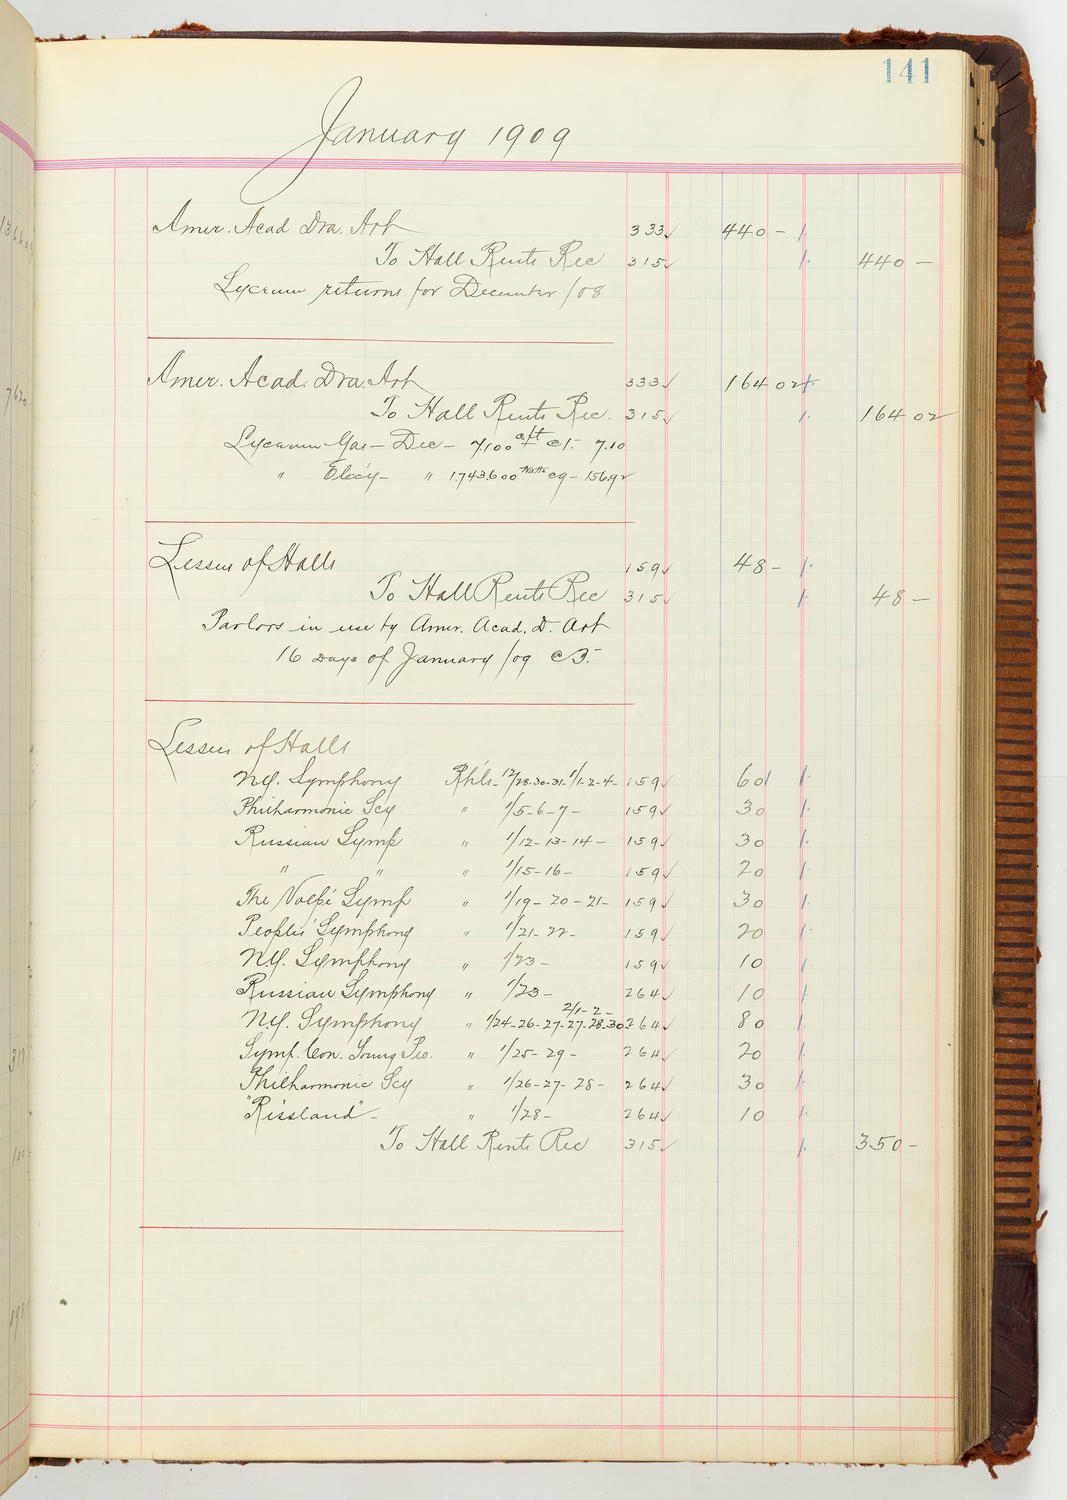 141
January 1909
Amer. Acad Dra. Art 333✓ 440 –
To Hall Rents Rec 315✓ 440 –
Lyceum returns for December /08
Amer. Acad. Dra. Art 333✓ 164 02
To Hall Rents Rec. 315✓ 164 02
Lyceum Gas – Dec – 7,100 c/ft @1.– 7.10
" Elec'y – " 1,743,600 Watts @9 – 156.92
Lessees of Halls 159✓ 48 –
To Hall Rents Rec 315✓ 48 –
Parlors in use by Amer. Acad. D. Art
16 Days of January /09 @3.–
Lessees of Halls
N.Y. Symphony Rh'ls – 12/28-30-31- 1/1-2-4- 159✓ 60
Philharmonic Scy " 1/5-6-7- 159✓ 30
Russian Symp " 1/12-13-14- 159✓ 30
" " " 1/15-16- 159✓ 20
The Volpé Symp " 1/19-20-21- 159✓ 30
Peoples' Symphony " 1/21-22- 159✓ 20
N.Y. Symphony " 1/23- 159✓ 10
Russian Symphony " 1/23- 264✓ 10
2/1-2-
N.Y. Symphony " 1/24-26-27-27-28-30 264✓ 80
Symp. Con. Young Peo. " 1/25-29- 264✓ 20
Philharmonic Scy " 1/26-27-28- 264✓ 30
" 1/28- 264✓ 10
To Hall Rents Rec 315✓ 350 –